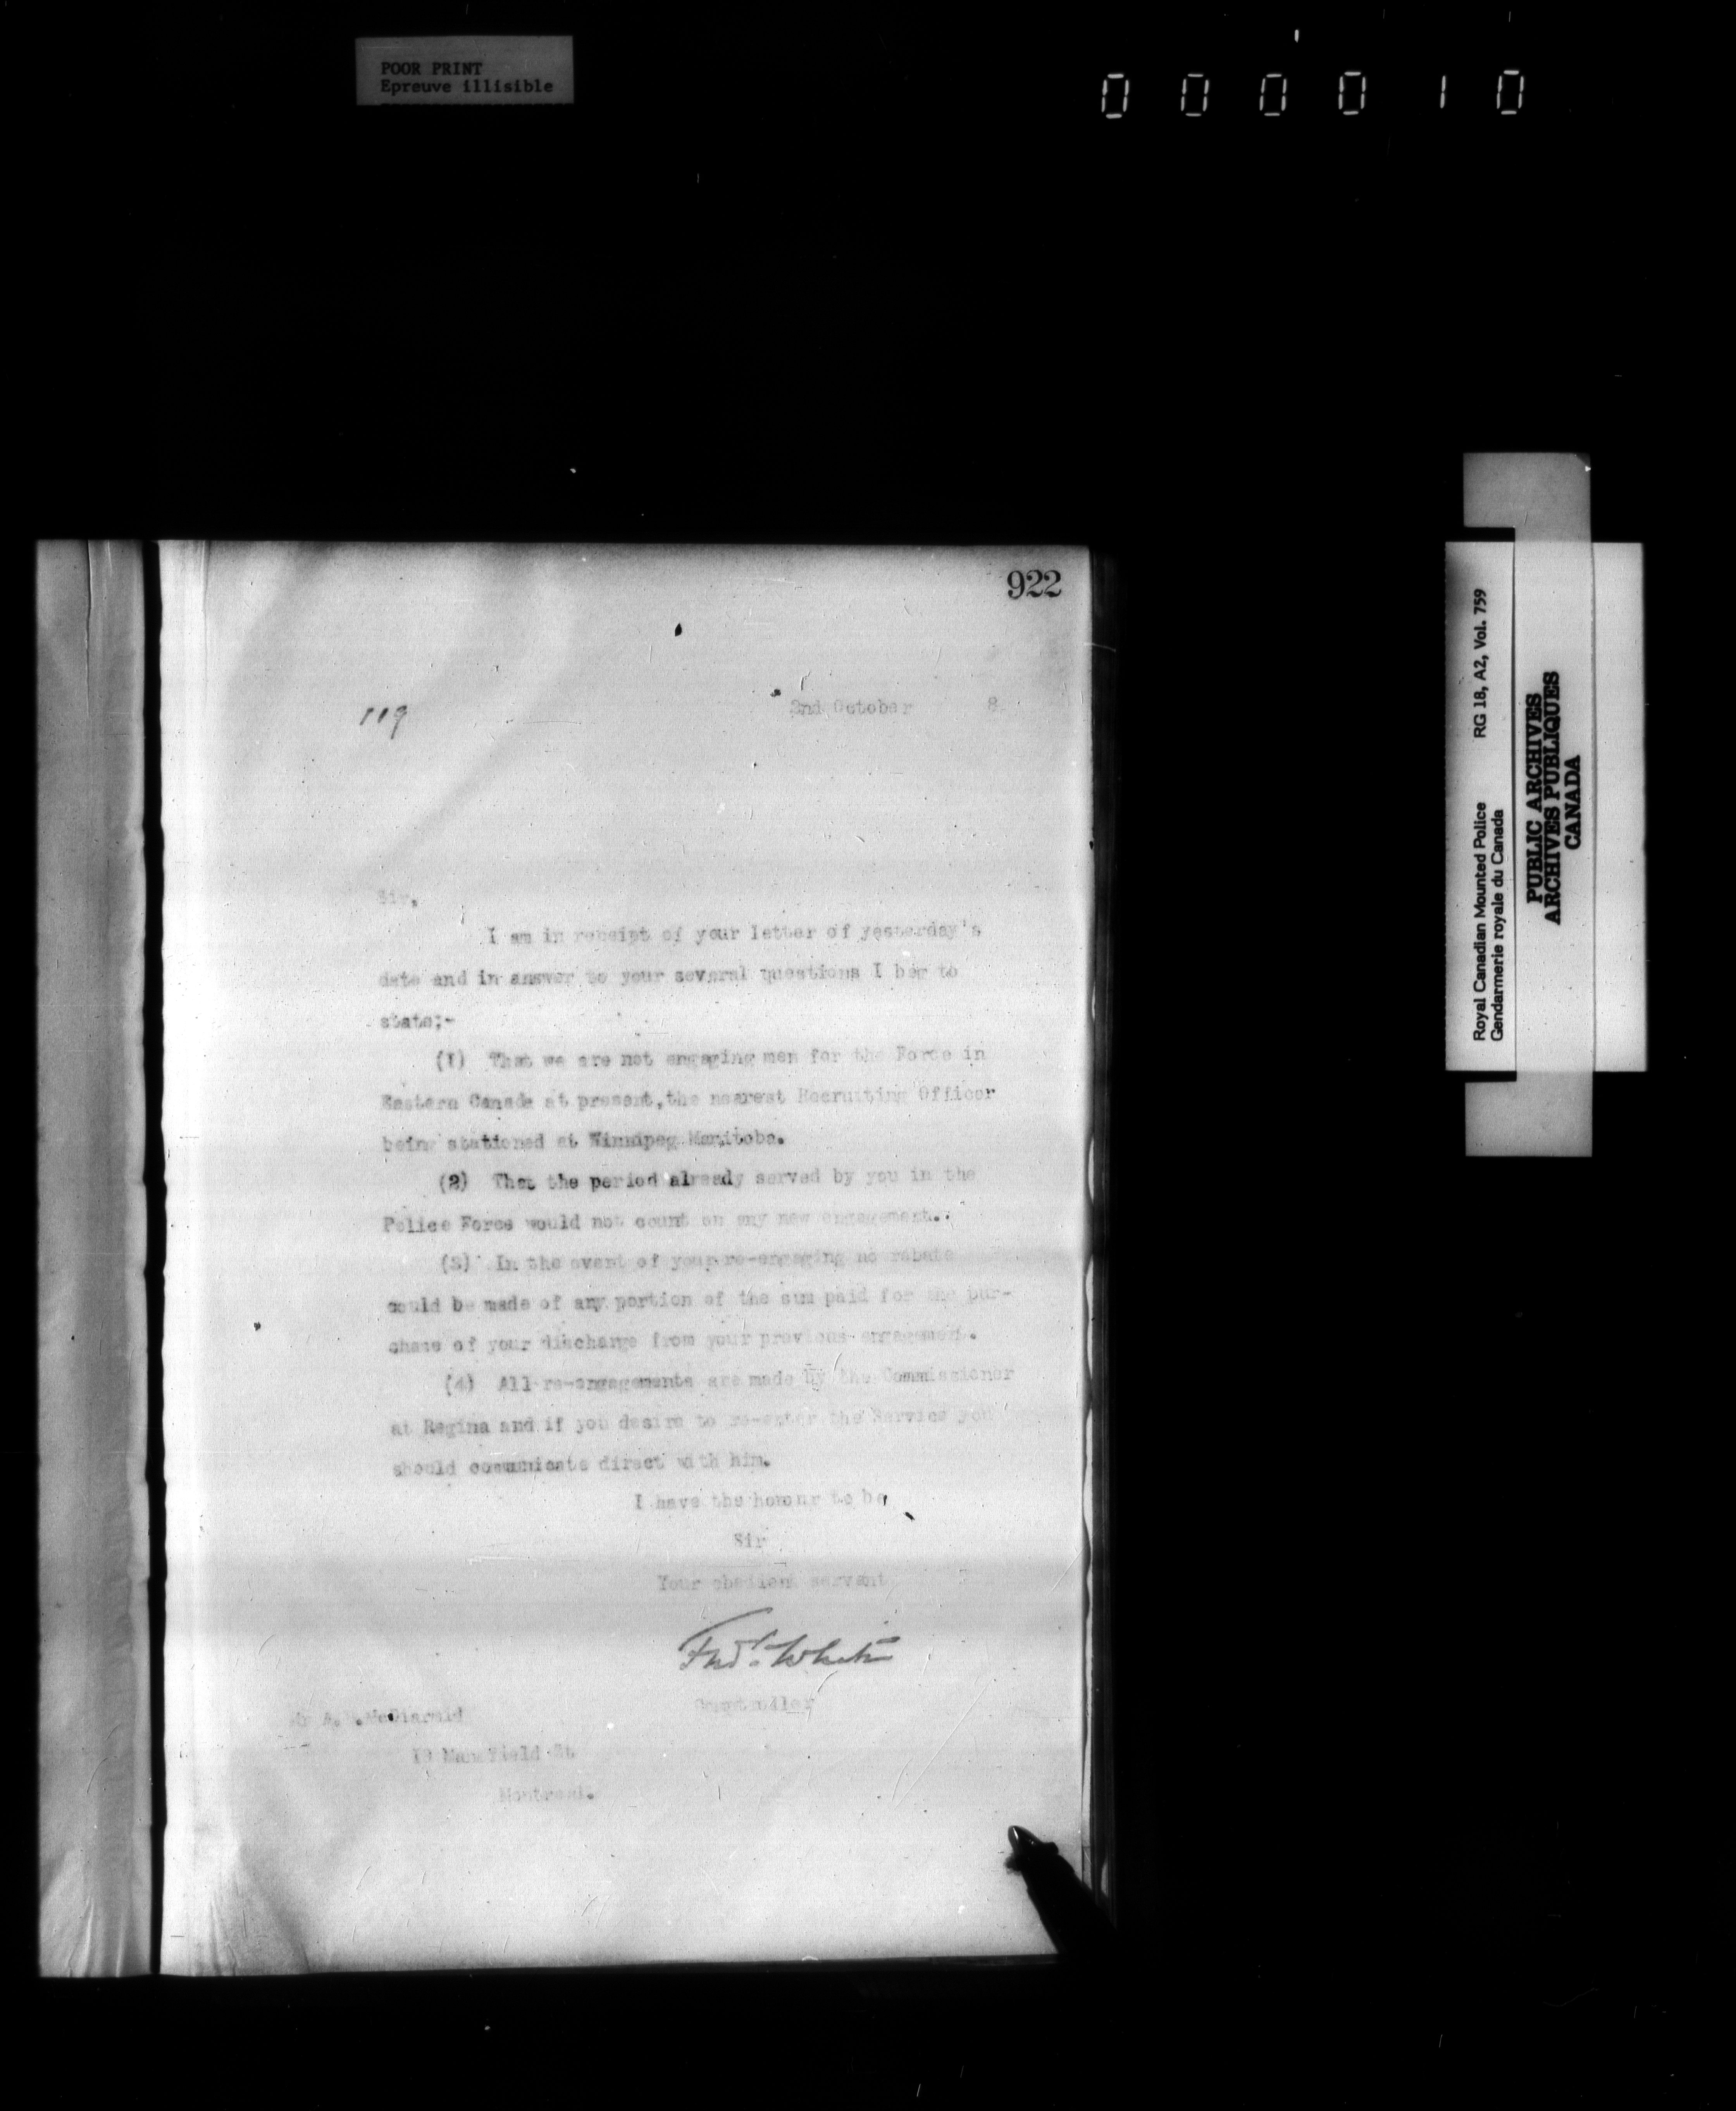 POOR PRINT
Epreuve illisible
0 0 0 0 1 0
922
119
2nd October 8
Sir,
I am in receipt of your letter of yesterday's
date and in answer to your several questions I beg to
state;-
(1) That we are not engaging men for the Force in
Eastern Canada at present, the nearest Recruiting Officer
being stationed at Winnipeg Manitoba.
(2) That the period already served by you in the
Police Force would not count on any new engagement.
(3) In the event of your re-engaging no rebate
could be made of any portion of the sum paid for the pur-
chase of your discharge from your previous engagement.
(4) All re-engagements are made by the Commissioner
at Regina and if you desire to re-enter the Service you
should communicate direct with him.
I have the honour to be
Sir
Your obedient servant
Fred. White
Comptroller
Mr A.
Mansfield St
Montreal.
Royal Canadian Mounted Police RG 18, A2, Vol. 759
Gendarmerie royale du Canada
PUBLIC ARCHIVES
ARCHIVES PUBLIQUES
CANADA